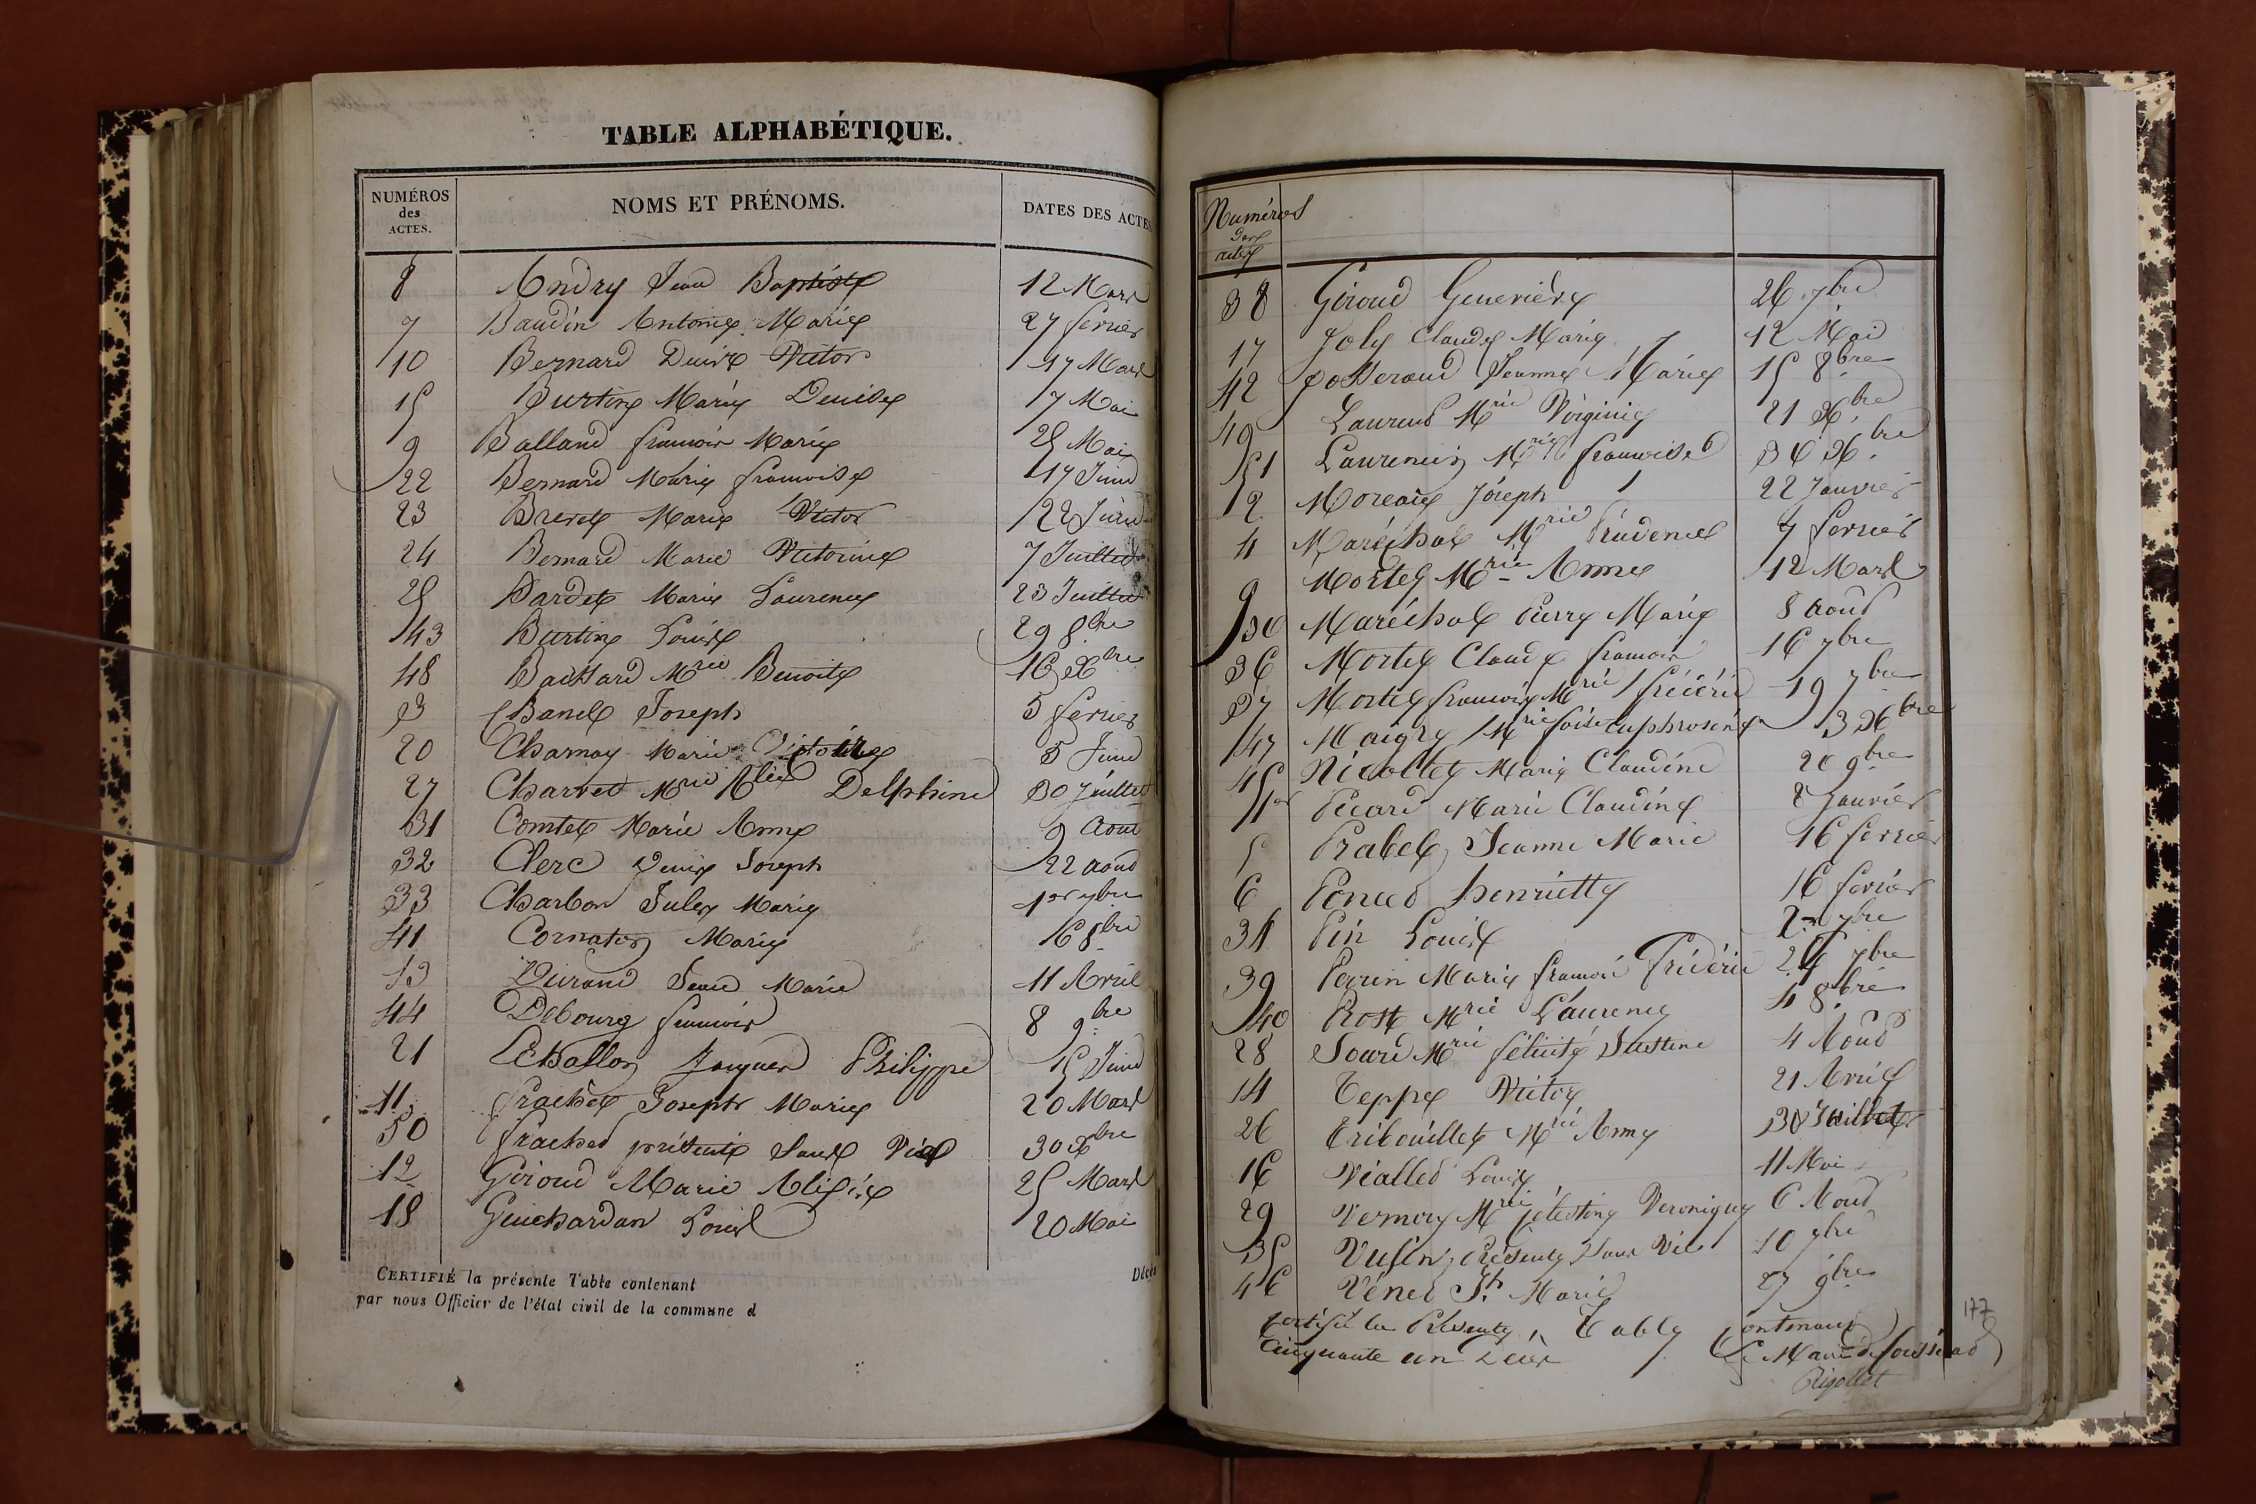 TABLE ALPHABÉTIQUE.
NUMÉROS des ACTES. NOMS ET PRÉNOMS. DATES DES ACTES
8 Andry Jean Baptiste 12 Mars
7 Baudin Antoine Marie 27 fevrier
10 Bernard Denise Victor 17 Mars
15 Burtin Marie Denise 7 Mai
9 Balland francois Marie 25 Mai
22 Bernard Marie francoise 17 Juin
23 Brevet Marie Victor 22 Juin
24 Bernard Marie Victorine 7 Juillet
25 Bardet Marie Laurence 23 Juillet
43 Burtin Louise 29 8bre
48 Baissard Mrie Benoite 16 Xbre
3 Banel Joseph 5 fevrier
20 Charnay Marie 5 Juin
27 Charvet Mrie Delphine 30 Juillet
31 Comtet Marie Anne 9 Aout
32 Clerc Denis Joseph 22 aout
33 Charbon Jules Marie 1er 7bre
41 Cornaton Marie 16 8bre
13 Durand Jean Marie 11 Avril
44 Debourg francois 8 9bre
21 Echallon Jacques Philippe 15 Juin
11 frachet Joseph Marie 20 Mars
50 frachet présenté Sans Vie 30 Xbre
12 Giroud Marie 25 Mars
18 Guichardan Louis 20 Mai
CERTIFIÉ la présente Table contenant Décès
par nous Officier de l'état civil de la commune d
Numéros
des
actes
38 Giroud Genevieve 26 7bre
17 Joly Claude Marie 12 Mai
42 Josserand Jeanne Marie 15 8bre
49 Laurent Mrie Virginie 21 Xbre
51 Laurencin Mrie francoise 30 Xbre
2 Moreau Joseph 22 Janvier
4 Maréchal Mrie Prudence 7 fevrier
9 Mortel Mrie Anne 12 Mars
30 Maréchal Pierre Marie 8 aout
36 Mortel Claude francois 16 7bre
37 Mortel francois Mrie frédéric 19 7bre
47 Maigre Mrie foise euphrosine 3 Xbre
45 Nicollet Marie Claudine 20 9bre
1er Picard Marie Claudine 8 Janvier
5 Prabel Jeanne Marie 16 fevrier
6 Poncet henriette 16 fevrier
34 Pin Louise 2 7bre
39 Perrin Marie francois Frédéric 7bre
40 Rost Mrie Laurence 4 8bre
28 Sourd Mrie félicité Justine 4 Aout
14 Teppe Victor 21 Avril
26 Tribouillet Mrie Anne 30 Juillet
16 Viallet Louise 11 Mai
29 Vernoux Mrie Célestine Veronique 6 Aout
35 Présenté Sans Vie 10 7bre
46 Vénet Jh Marie 27 9bre
certifié la Présente Table contenant
Cinquante un Décès Le Maire de foissiat
Rigollet
177